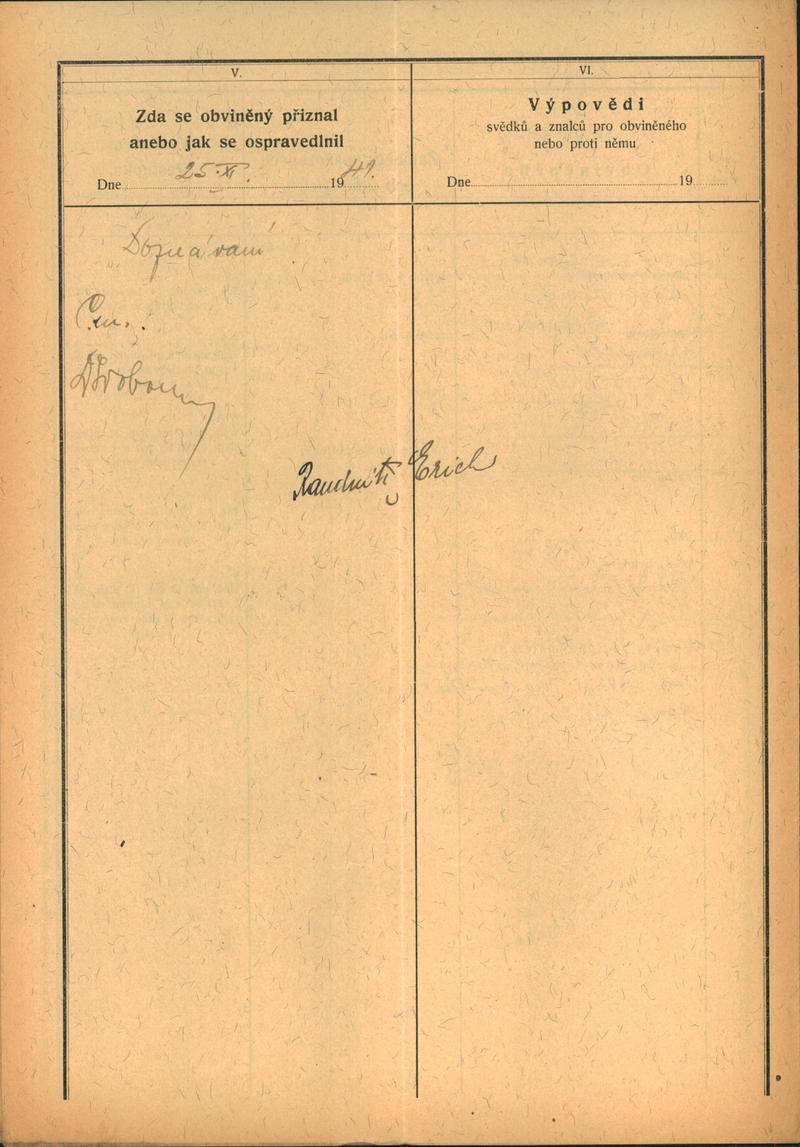 V.
Zda se obviněný přiznal
anebo jak se ospravedlnil
Dne 25. XI. 1941.
Doznávám
VI.
Výpovědi
svědků a znalců pro obviněného
nebo proti němu
Dne 19
Raudnitz Erich